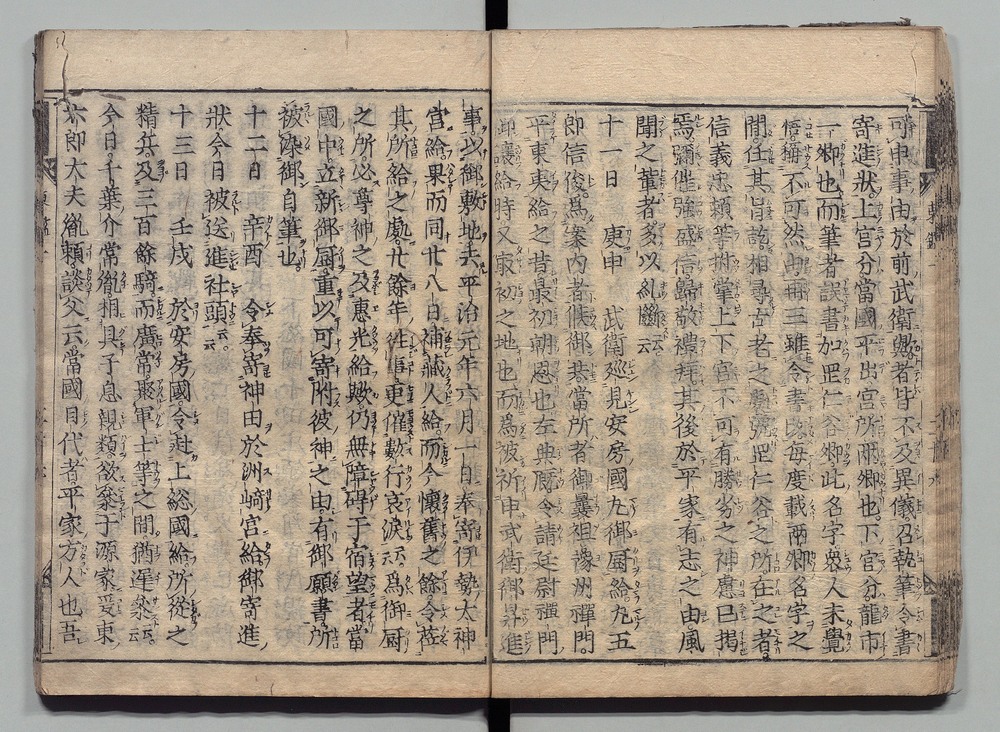 可申事由於前武衛勲者皆不及異儀召執筆令書
寄進狀上宮分當國平出宮所兩郷也下宮分龍市
一郷也而筆者誤書加岡仁谷郷此名字衆人未覺
悟稱不可然由再三雖令書改毎度載兩郷名字之
間任其旨訖相尋古老之處号岡仁谷之所在之者
信義忠賴等拊掌上下宮不可有勝劣之神慮已掲
焉彌催強盛信歸敬禮拜其後於平家有志之由風
聞之輩者多以糺斷云云
十一日 庚申 武衛廵見安房國丸御厨給丸五
郎信俊爲案内者候御共當所者御曩祖豫州禪門
平東夷給之昔最初朝恩也左典厩令請廷尉禪門
御讓給時又最初之地也而爲被祈申武衛御昇進
事以御敷地去平治元年六月一日奉寄伊勢太神
宮給果而同廿八日補藏人給而今懷舊之餘令莅
其所給之處廿餘年徃事更催數行哀涙云云爲御厨
之所必尊神之及惠光給歟仍無障碍于宿望者當
國中立新御厨重以可寄附彼神之由有御願書所
被染御自筆也
十二日 辛酉 令奉寄神田於洲﨑宮給御寄進
狀今日被送進社頭云云
十三日 壬戌 於安房國令赴上総國給所從之
精兵及三百餘騎而廣常聚軍士等之間猶遲参云云
今日千葉介常胤相具子息親類欲參于源家爰東
六郎大夫胤頼談父云當國目代者平家方人也吾